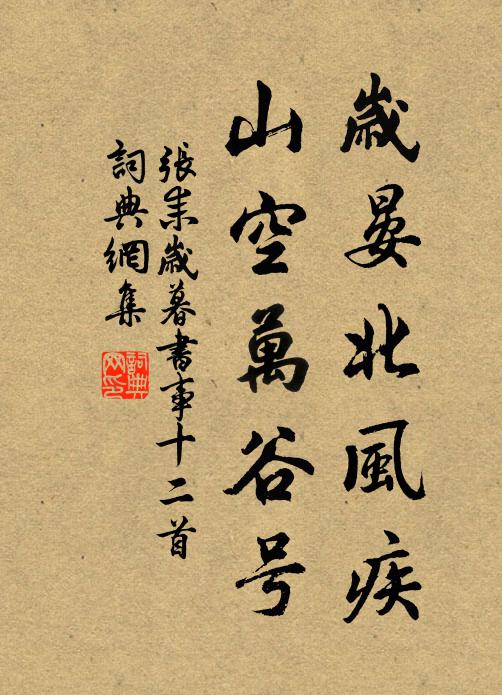 歲晏北風疾
山空萬谷号
張耒歲暮書事十二首
詞典網集
詞典網印